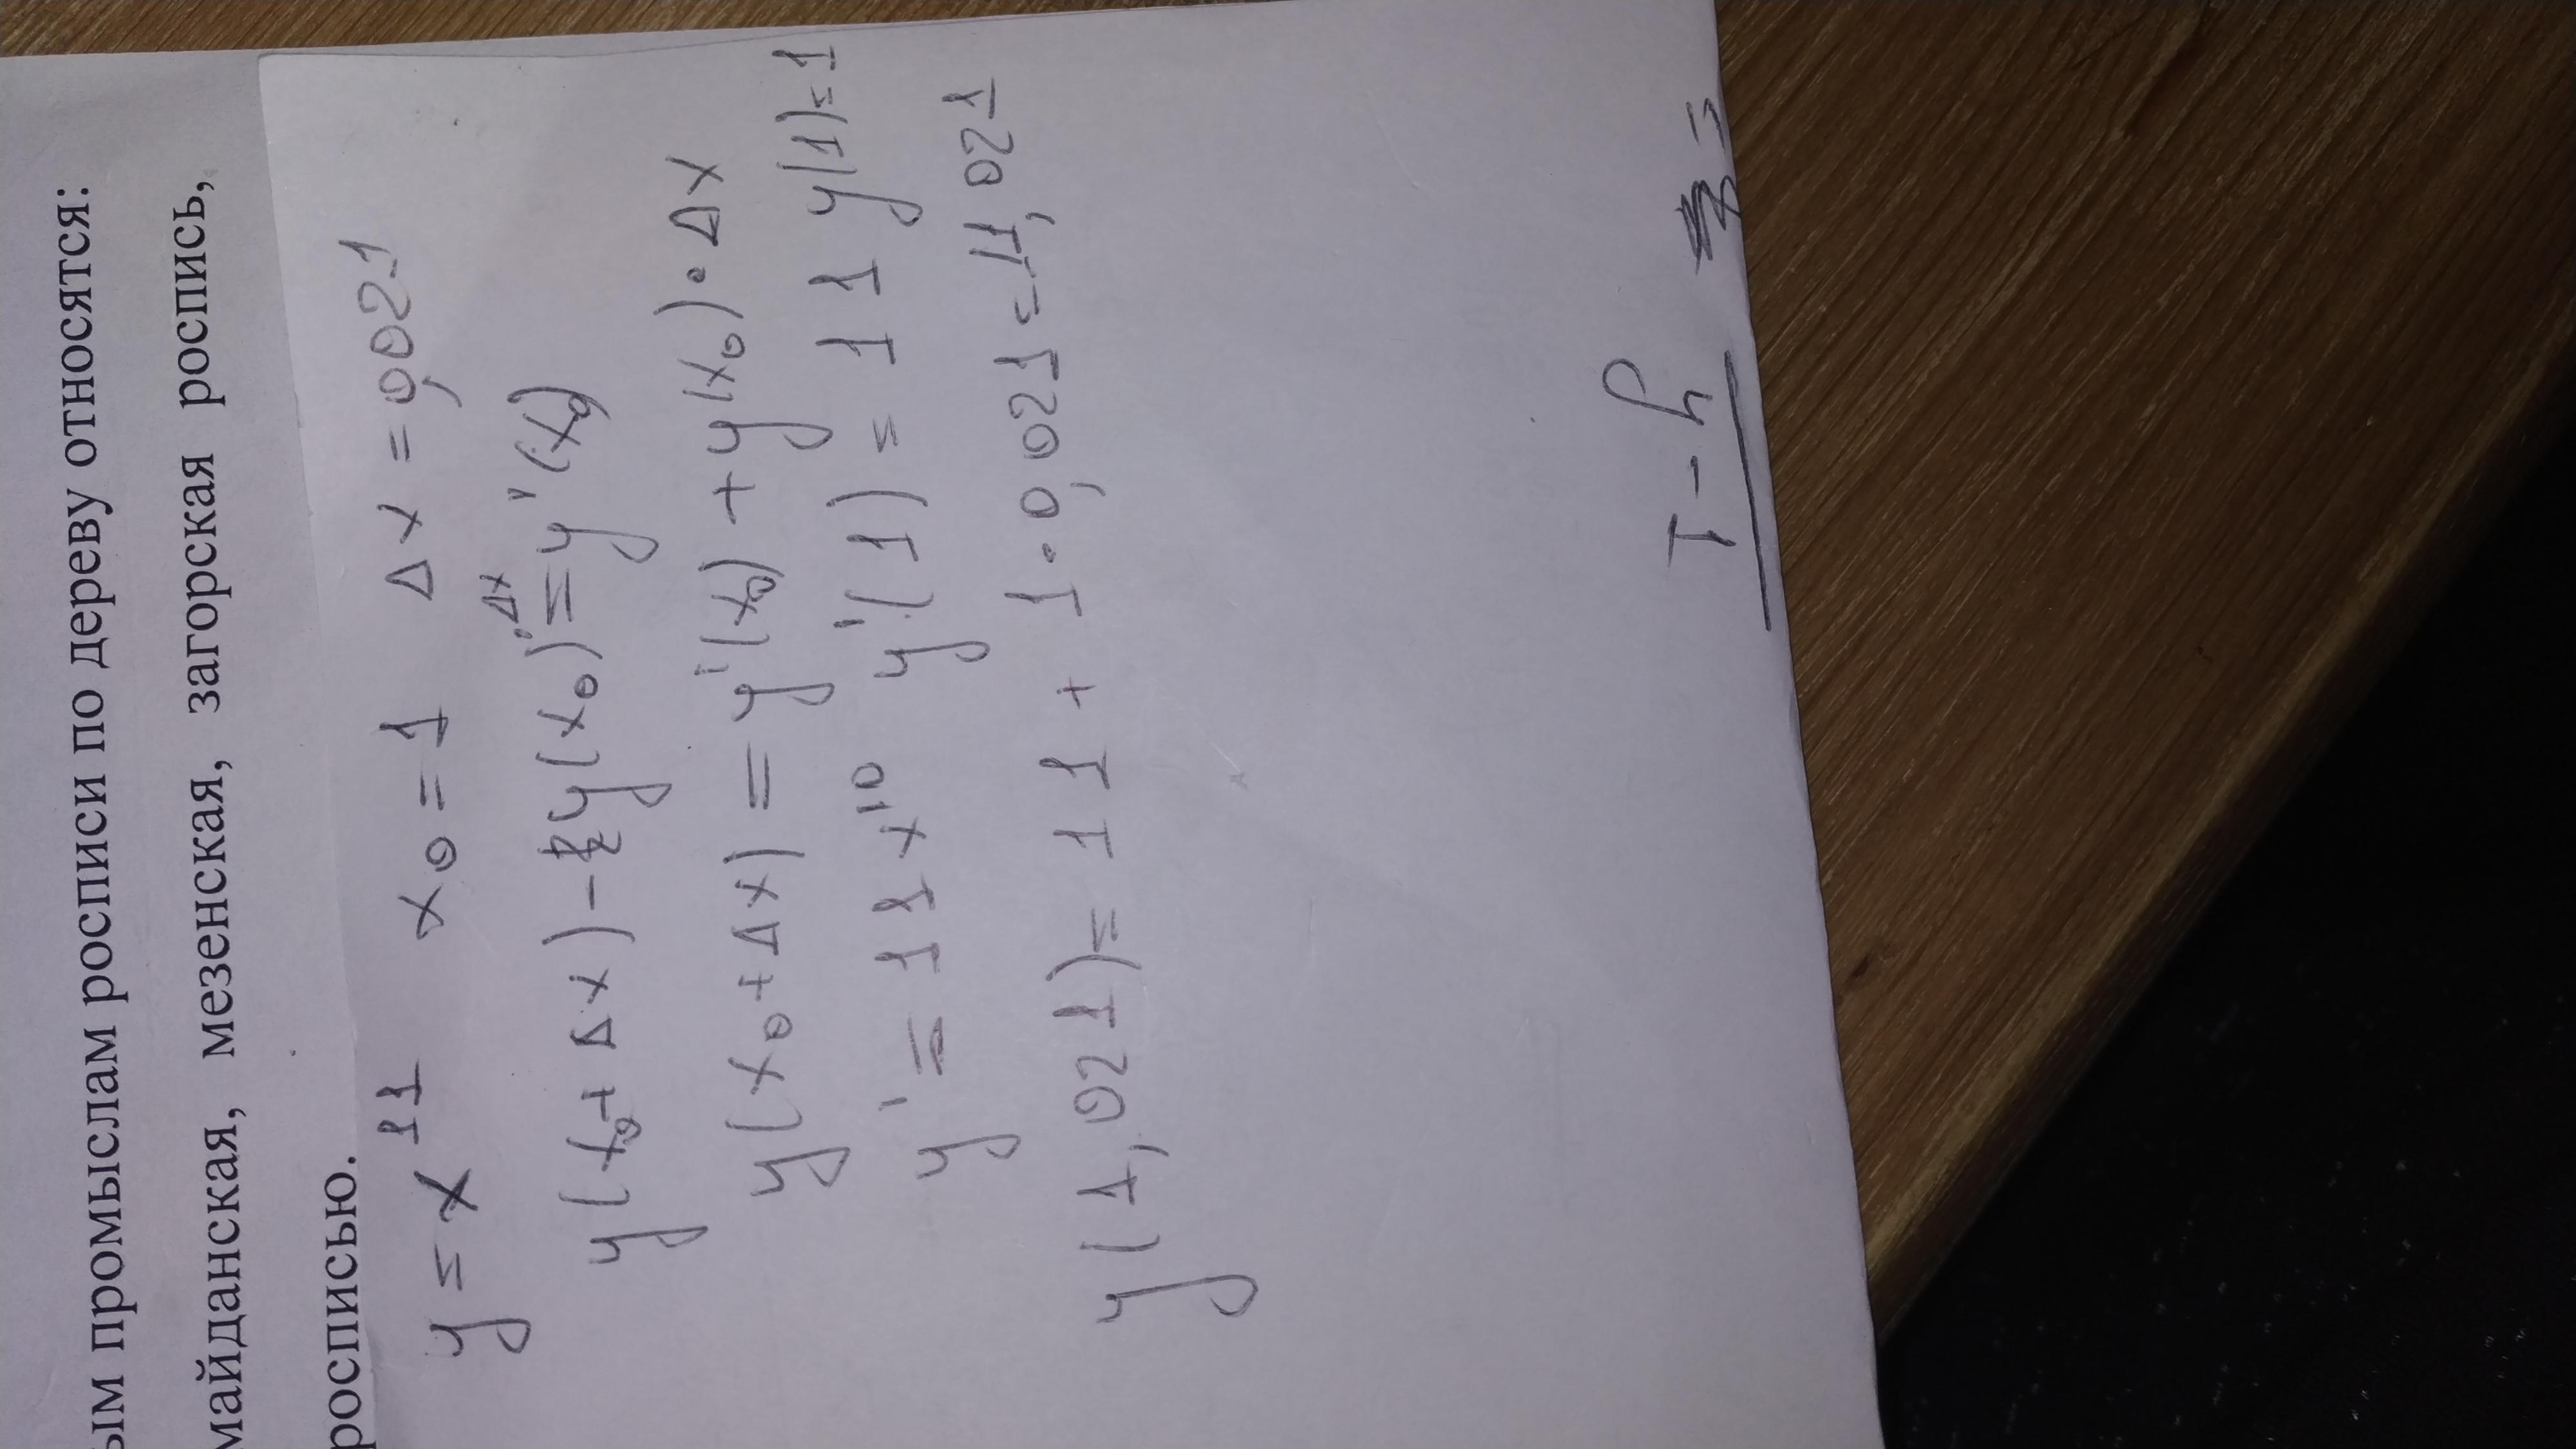 ым промыслам росписи по дереву относятся:
майданская, мезенская, загорская роспись,
росписью.
y = x¹¹ x₀ = 1 Δx = 0,021
y(x₀ + Δx) - y(x₀)·Δx = y'(x₀)
y(x₀ + Δx) = y'(x₀) + y(x₀)·Δx
y' = 11x¹⁰ y'(1) = 11 y(1) = 1
y(1,021) = 11 + 1·0,021 = 11,021